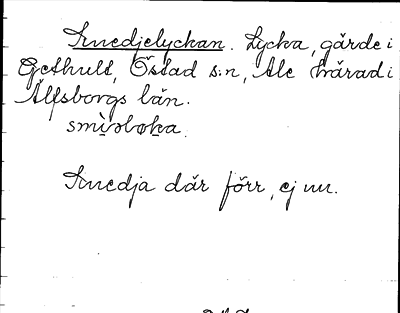 Smedjelyckan. Lycka, gärde i
Gethult, Östad s:n, Ale härad i
Älfsborgs län.
smìsloka
Smedja där förr, ej nu.